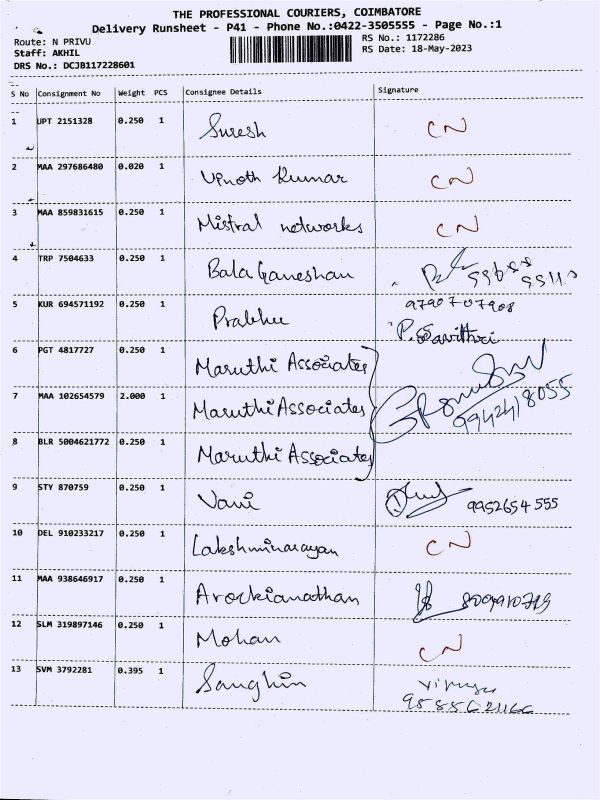 THE PROFESSIONAL COURIERS, COIMBATORE
Delivery Runsheet - P41 - Phone No.:0422-3505555 - Page No.:1
Route: N PRIVU
RS No.: 1172286
Staff: AKHIL
RS Date: 18-May-2023
DRS No.: DCJB117228601
S No Consignment No Weight PCS Consignee Details Signature
1 UPT 2151328 0.250 1 Suresh CN
2 MAA 297686480 0.020 1 Vinoth Kumar CN
3 MAA 859831615 0.250 1 Mistral networks CN
4 TRP 7504633 0.250 1 Bala Ganeshan
5 KUR 694571192 0.250 1 Prabhu 9790707908
P. Savithri
6 PGT 4817727 0.250 1 Maruthi Associates
7 MAA 102654579 2.000 1 Maruthi Associates 9942418055
8 BLR 5004621772 0.250 1 Maruthi Associates
9 STY 870759 0.250 1 Vani 9952654555
10 DEL 910233217 0.250 1 Lakshminarayan CN
11 MAA 938646917 0.250 1 Arockianathan
12 SLM 319897146 0.250 1 Mohan CN
13 SVM 3792281 0.395 1